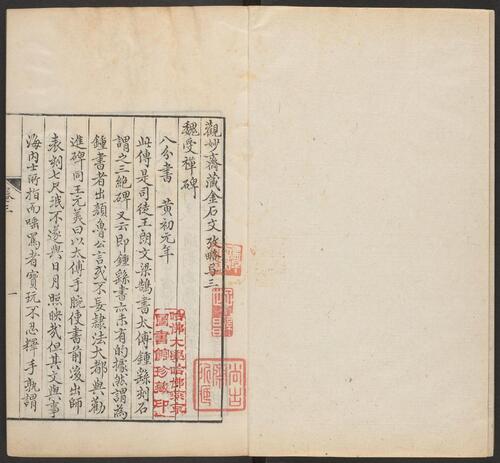 觀妙齋藏金石文攷略卷三
魏受禪碑
八分書 黃初元年
此傳是司徒王朗文梁鵠書太傅鍾繇刻石
謂之三絶碑又云即鍾繇書亦未有的據然謂為
鍾書者出顏魯公言或不妄隸法大都與勸
進碑同王元美曰以太傅手腕使書前後出師
表刻七尺珉不遂與日月照映哉但其文與事
海內士所指而嗤罵者寶玩不忍釋手孰謂
卷三
一
哈佛大學哈佛燕京
圖書館珍藏印